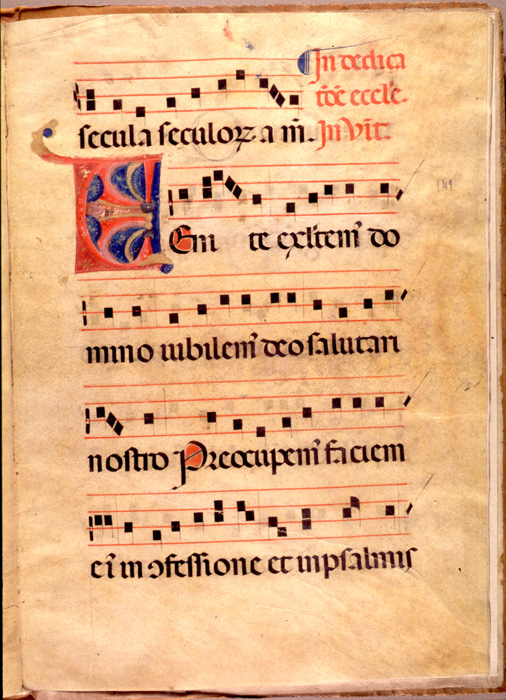 In dedica
tōe eccle.
secula seculoꝝ a m̄. In Vit̄.
Eni te exl'tem' do
mino iubilem' deo salutari
nostro Preocupem' faciem
ei' in ɔfessione et in psalmis